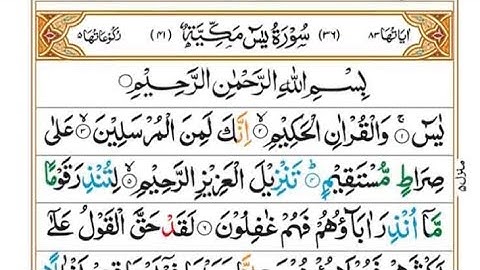 اٰیَاتُهَا ۸۳ (۳۶) سُوْرَةُ يٰسٓ مَكِّيَّةٌ (۴۱) رُكُوْعَاتُهَا ۵
بِسْمِ اللّٰهِ الرَّحْمٰنِ الرَّحِيْمِ
يٰسٓ ۱ وَالْقُرْاٰنِ الْحَكِيْمِ ۲ اِنَّكَ لَمِنَ الْمُرْسَلِيْنَ ۳ عَلٰى
صِرَاطٍ مُّسْتَقِيْمٍ ۴ تَنْزِيْلَ الْعَزِيْزِ الرَّحِيْمِ ۵ لِتُنْذِرَ قَوْمًا
مَّاۤ اُنْذِرَ اٰبَآؤُهُمْ فَهُمْ غٰفِلُوْنَ ۶ لَقَدْ حَقَّ الْقَوْلُ عَلٰۤى
منزل ۵